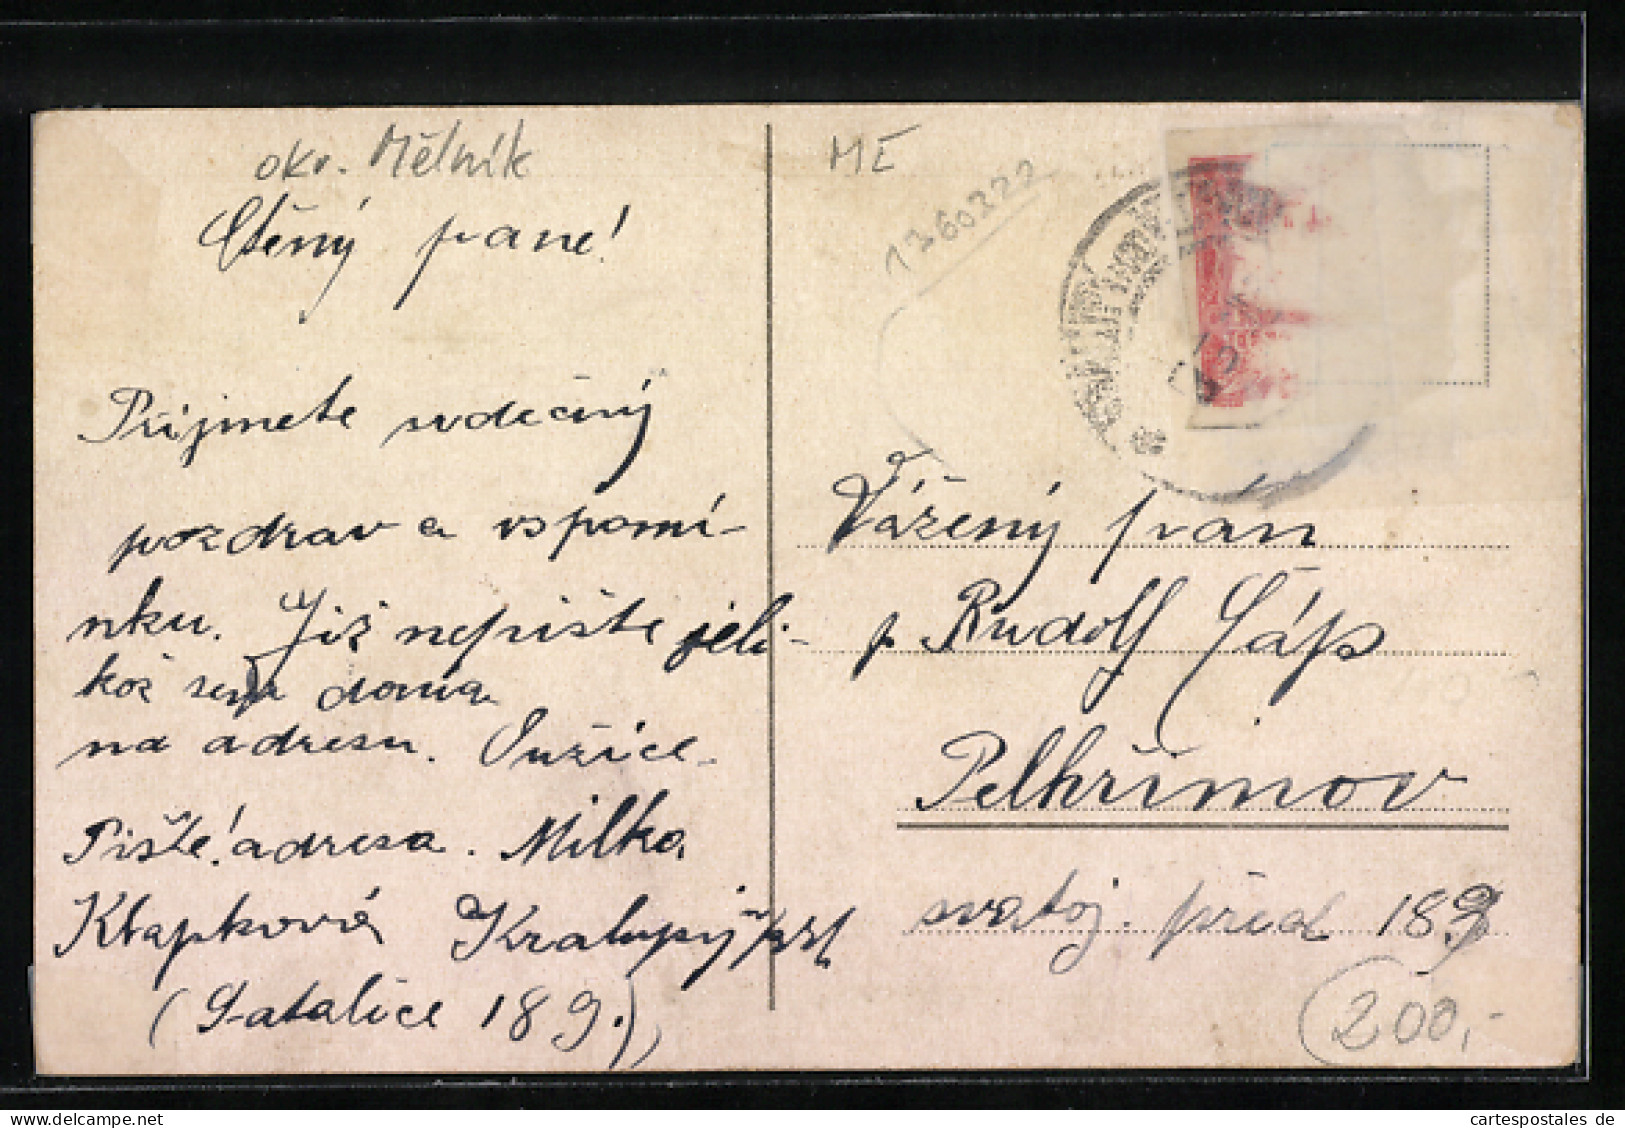 okr. Mělník
Ctěný pane!
Přijmete srdečný
pozdrav a vspomí-
nku. Již nepište jeli-
kož sem doma
na adresu. Oužice.
Pište! adresa. Milka
Klapková Kralupy
( 189.)
ME
1360222
Vážený pan
p Rudolf Čáp
Pelhřimov
svatoj. před 189
200,-
cartespostales de